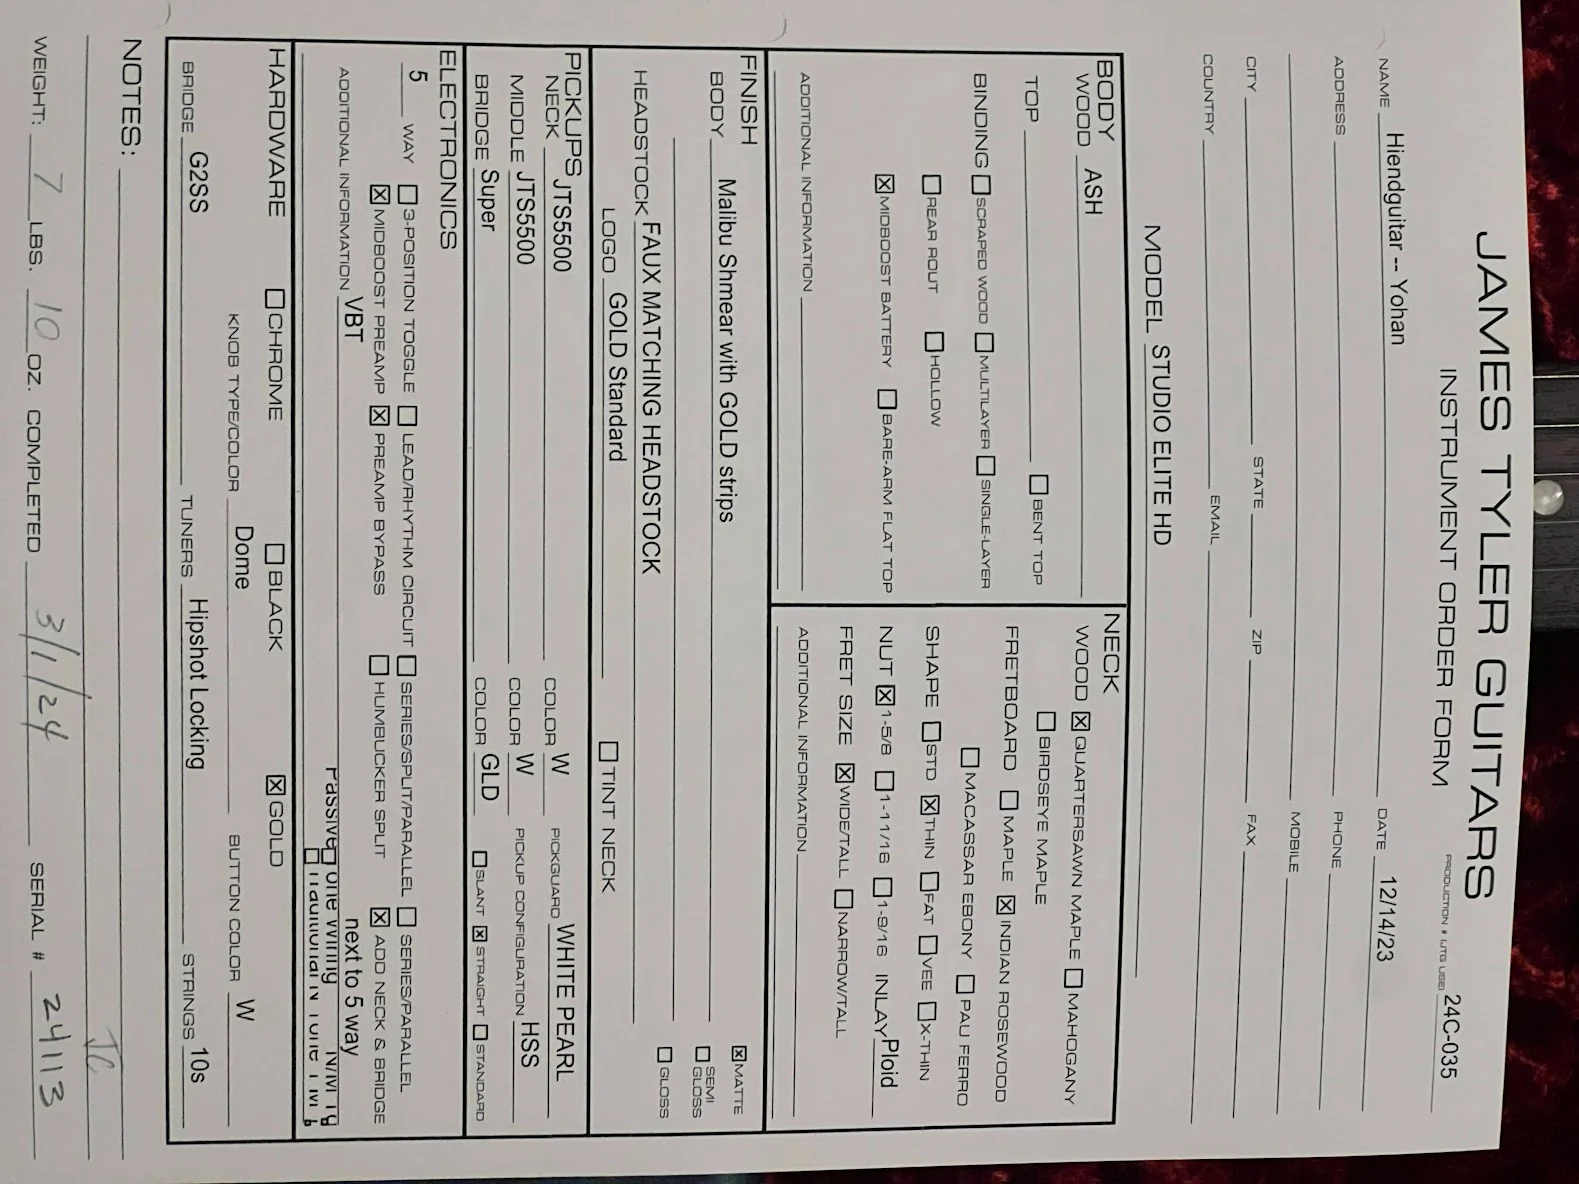 JAMES TYLER GUITARS
INSTRUMENT ORDER FORM
PRODUCTION # (JTG USE) 24C-035
NAME Hiendguitar -- Yohan DATE 12/14/23
ADDRESS PHONE
MOBILE
CITY STATE ZIP FAX
COUNTRY EMAIL
MODEL STUDIO ELITE HD
BODY
WOOD ASH
TOP ☐ BENT TOP
BINDING ☐ SCRAPED WOOD ☐ MULTILAYER ☐ SINGLE-LAYER
☐ REAR ROUT ☐ HOLLOW
☒ MIDBOOST BATTERY ☐ BARE-ARM FLAT TOP
ADDITIONAL INFORMATION
NECK
WOOD ☒ QUARTERSAWN MAPLE ☐ MAHOGANY
☐ BIRDSEYE MAPLE
FRETBOARD ☐ MAPLE ☒ INDIAN ROSEWOOD
☐ MACASSAR EBONY ☐ PAU FERRO
SHAPE ☐ STD ☒ THIN ☐ FAT ☐ VEE ☐ X-THIN
NUT ☒ 1-5/8 ☐ 1-11/16 ☐ 1-9/16 INLAY Ploid
FRET SIZE ☒ WIDE/TALL ☐ NARROW/TALL
ADDITIONAL INFORMATION
FINISH
BODY Malibu Shmear with GOLD strips ☒ MATTE
☐ SEMI GLOSS
☐ GLOSS
HEADSTOCK FAUX MATCHING HEADSTOCK
LOGO GOLD Standard ☐ TINT NECK
PICKUPS
NECK JTS5500 COLOR W PICKGUARD WHITE PEARL
MIDDLE JTS5500 COLOR W PICKUP CONFIGURATION HSS
BRIDGE Super COLOR GLD ☐ SLANT ☒ STRAIGHT ☐ STANDARD
ELECTRONICS
5 WAY ☐ 3-POSITION TOGGLE ☐ LEAD/RHYTHM CIRCUIT ☐ SERIES/SPLIT/PARALLEL ☐ SERIES/PARALLEL
☒ MIDBOOST PREAMP ☒ PREAMP BYPASS ☐ HUMBUCKER SPLIT ☒ ADD NECK & BRIDGE
ADDITIONAL INFORMATION VBT next to 5 way
Passive
HARDWARE ☐ CHROME ☐ BLACK ☒ GOLD
KNOB TYPE/COLOR Dome BUTTON COLOR W
BRIDGE G2SS TUNERS Hipshot Locking STRINGS 10s
NOTES:
JC
WEIGHT: 7 LBS. 10 OZ. COMPLETED 3/1/24 SERIAL # 24113